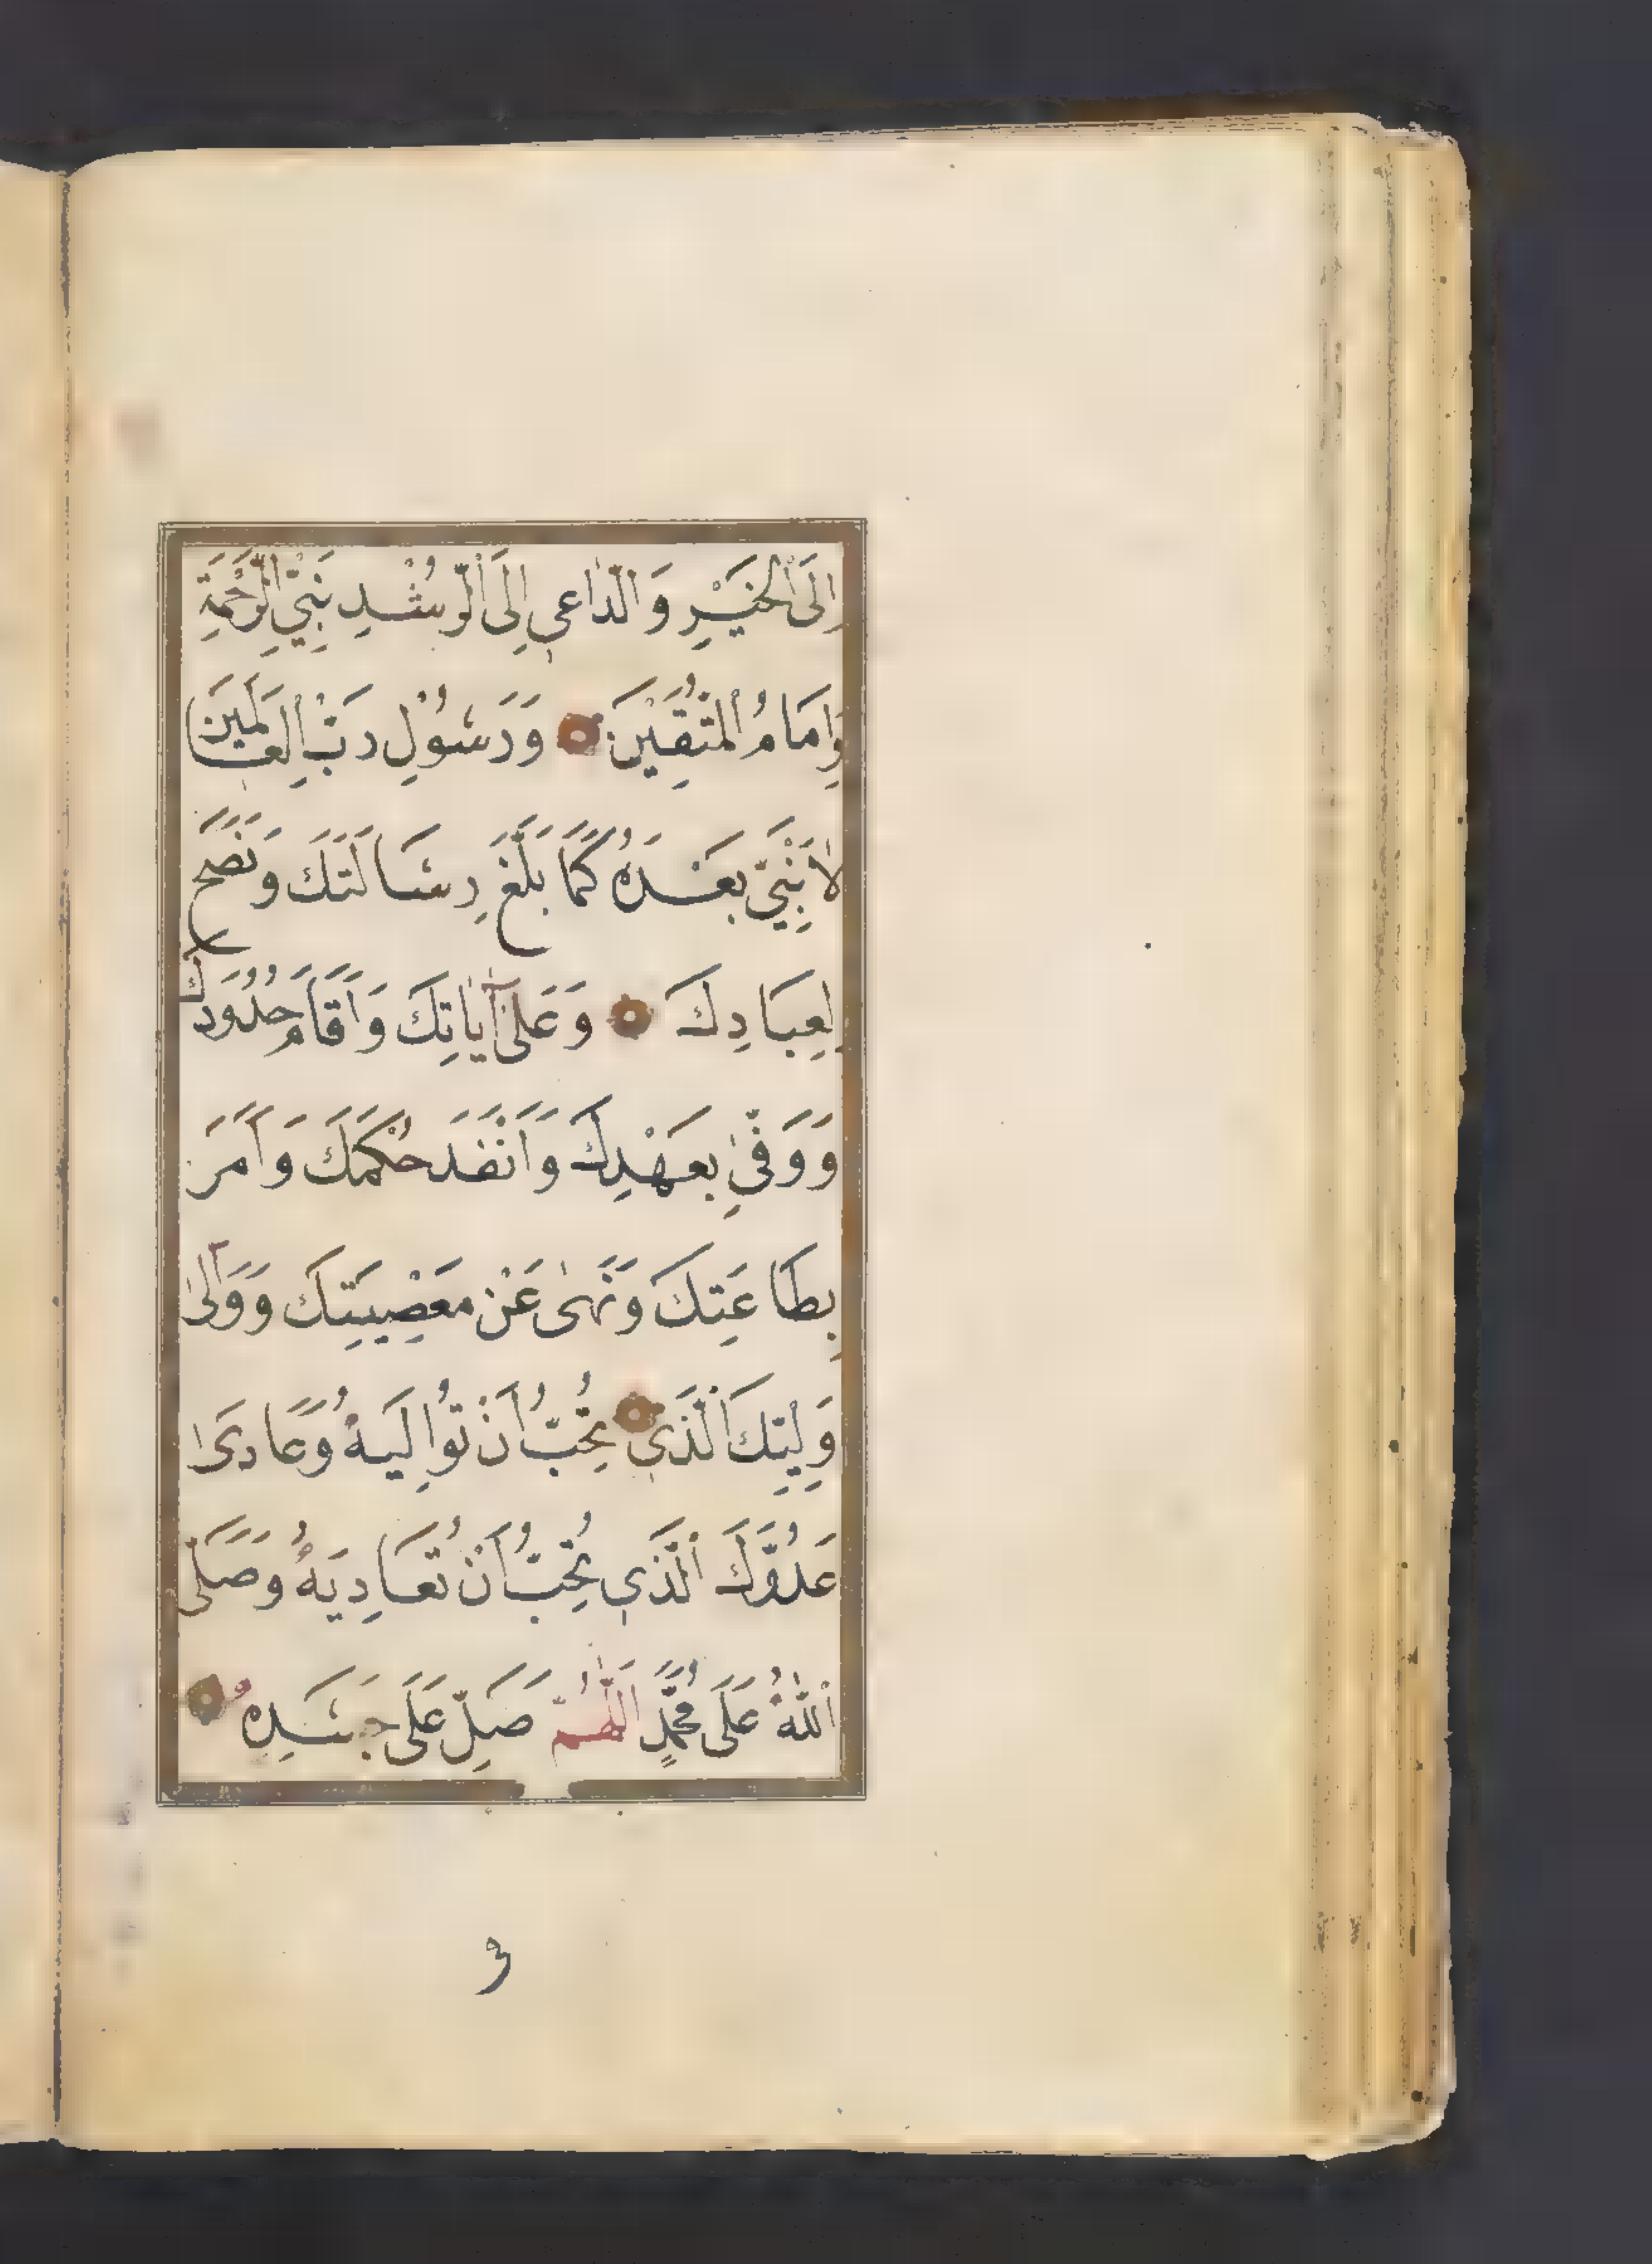 اِلَى الْخَيْرِ وَالدَّاعِي اِلَى الرُّشْدِ نَبِيِّ الرَّحْمَةِ
وَاِمَامُ الْمُتَّقِيْنَ وَرَسُوْلِ رَبِّ الْعَالَمِيْنَ
لَا نَبِيَّ بَعْدَهُ كَمَا بَلَّغَ رِسَالَتَكَ وَنَصَحَ
لِعِبَادِكَ وَعَلَىٓ اٰيَاتِكَ وَاَقَامَ حُدُوْدَكَ
وَوَفّٰى بِعَهْدِكَ وَاَنْفَدَ حُكْمَكَ وَاَمَرَ
بِطَاعَتِكَ وَنَهٰى عَنْ مَعْصِيَتِكَ وَوَالٰى
وَلِيِّكَ الَّذِي تُحِبُّ اَنْ تُوالِيَهُ وَعَادٰى
عَدُوَّكَ الَّذِي تُحِبُّ اَنْ تُعَادِيَهُ وَصَلَّى
اللّٰهُ عَلَى مُحَمَّدٍ اَللّٰهُمَّ صَلِّ عَلَى جَسَدِهِ